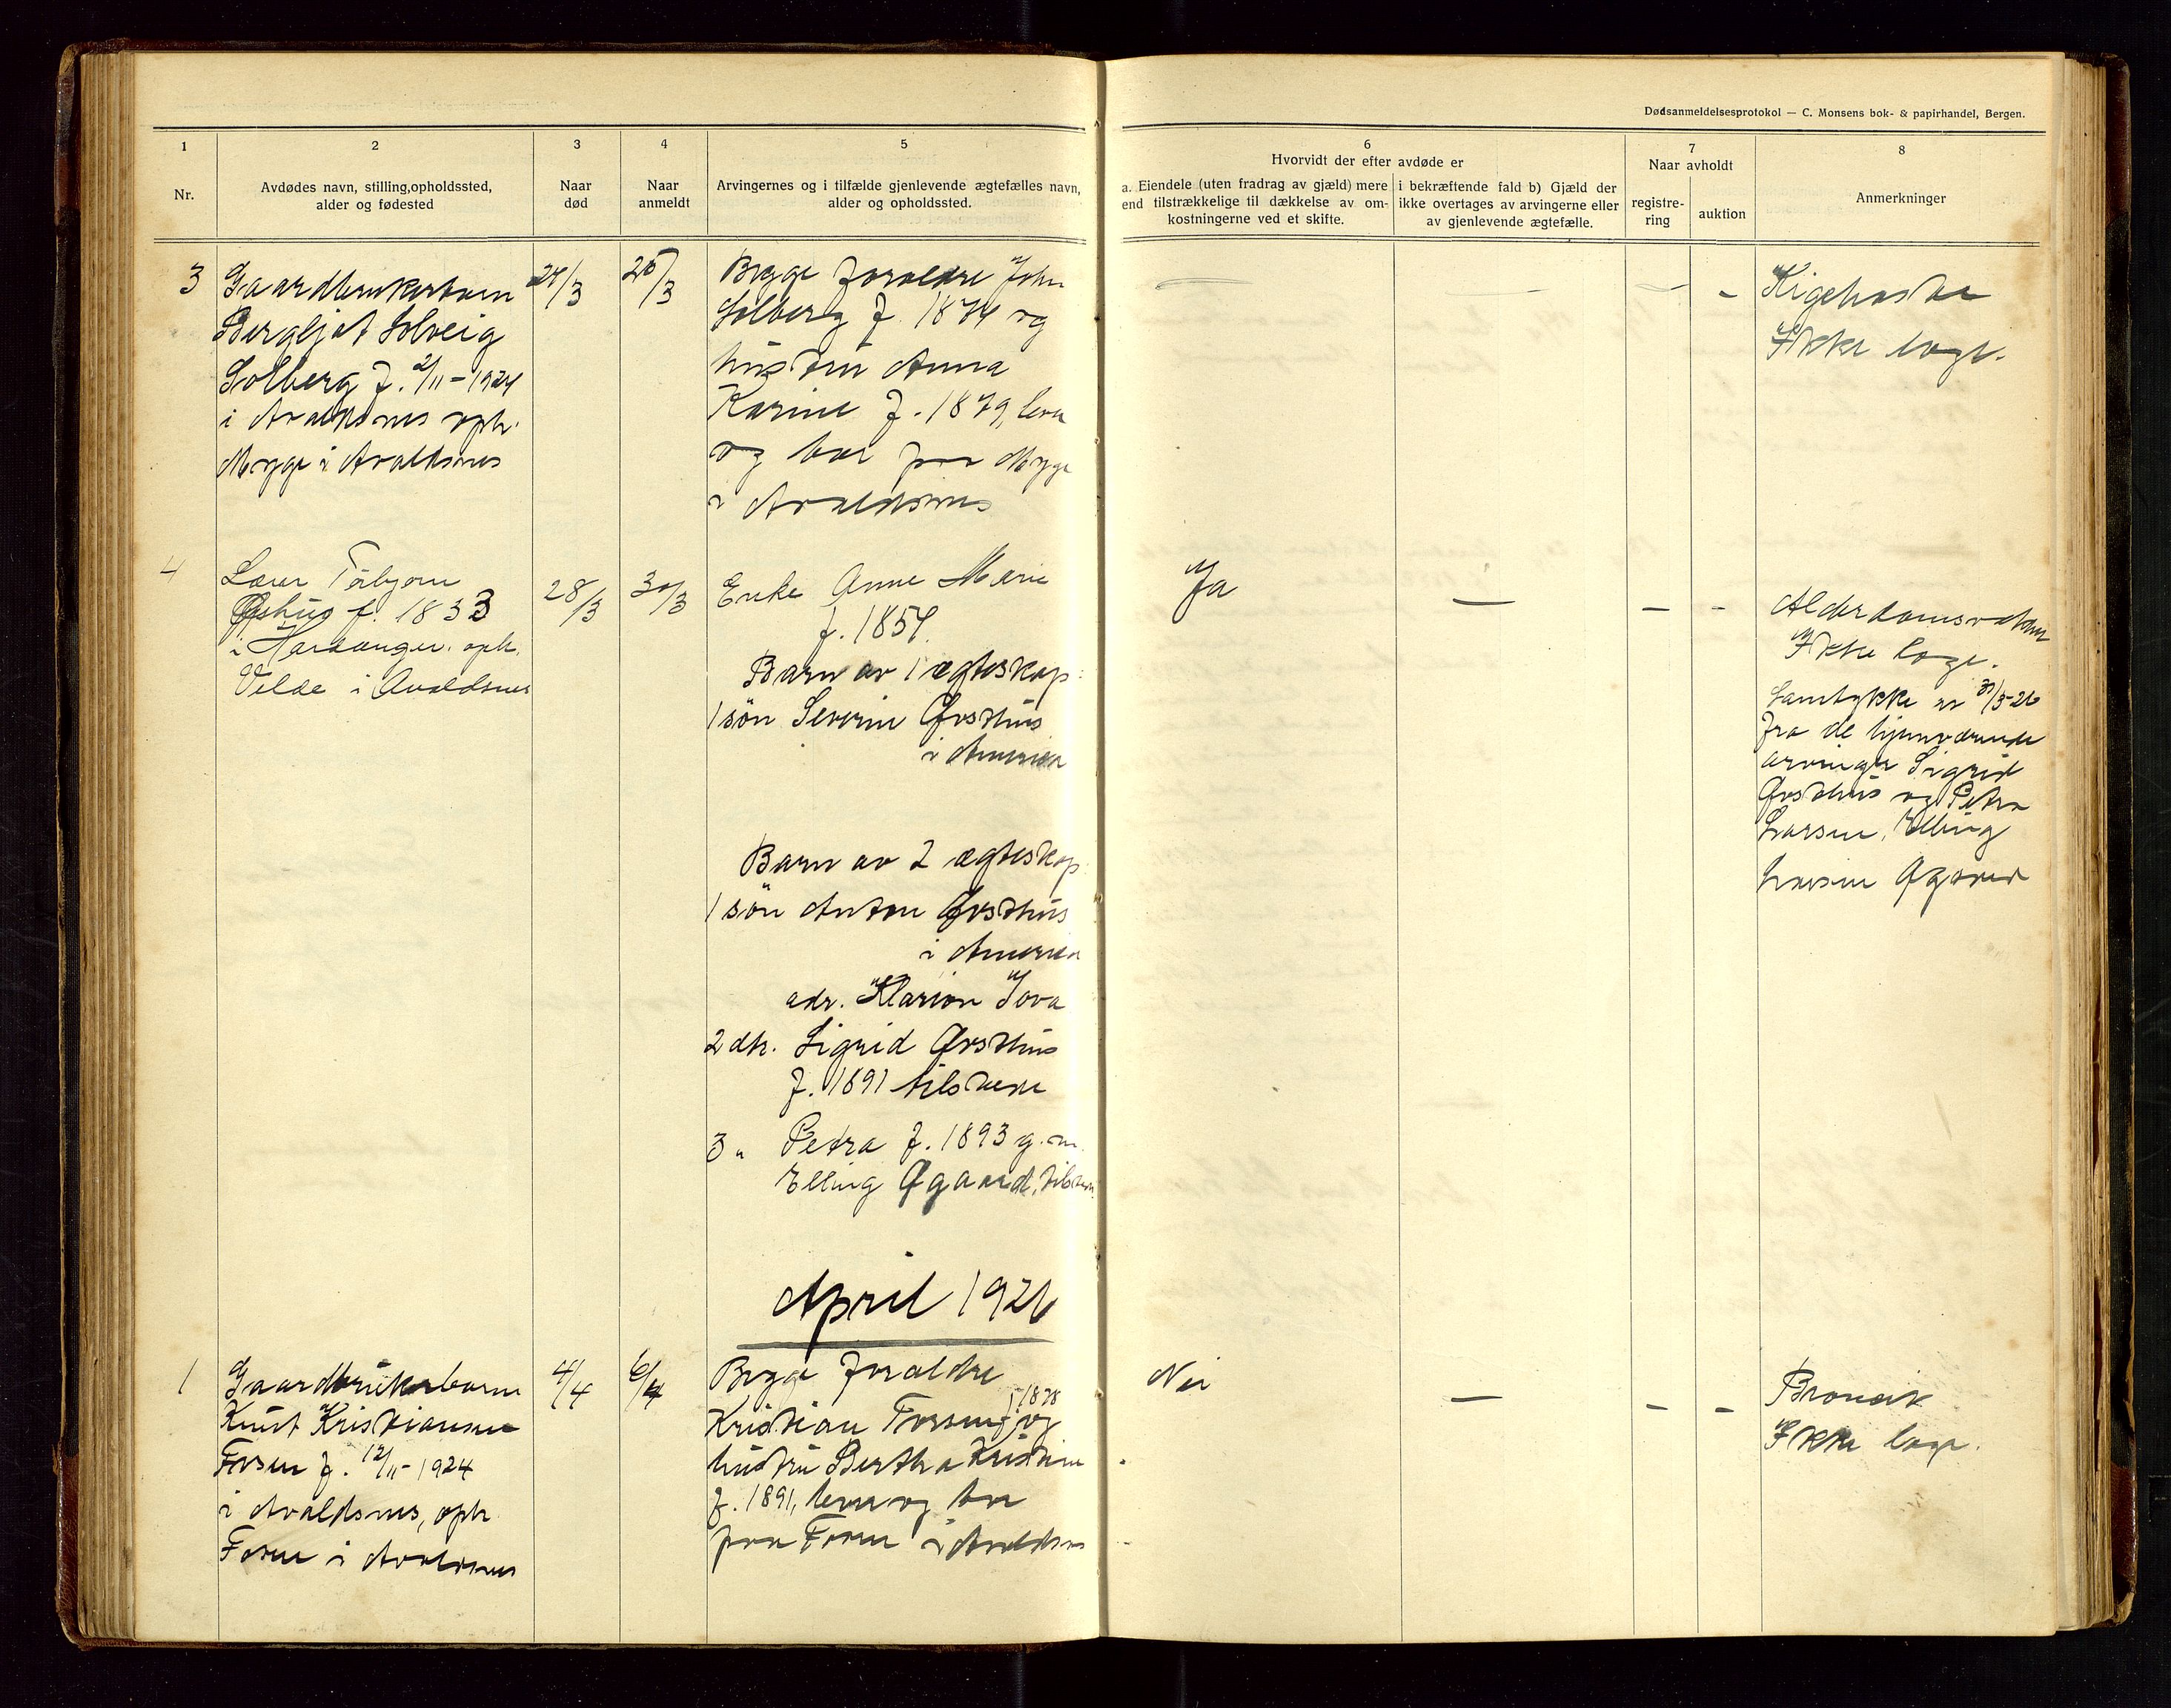 Dødsanmeldelsesprotokol — C. Monsens bok- & papirhandel, Bergen.
1
Nr.
2
Avdødes navn, stilling, opholdssted,
alder og fødested
3
Naar
død
4
Naar
anmeldt
5
Arvingernes og i tilfælde gjenlevende ægtefælles navn,
alder og opholdssted.
6
Hvorvidt der efter avdøde er
a. Eiendele (uten fradrag av gjæld) mere
end tilstrækkelige til dækkelse av om-
kostningerne ved et skifte.
i bekræftende fald b) Gjæld der
ikke overtages av arvingerne eller
av gjenlevende ægtefælle.
7
Naar avholdt
registre-
ring
auktion
8
Anmerkninger
3
Gaardbrukerbarn
Bergljot Solveig
Solberg f. 2/11-1924
i Avaldsnes oph.
Mygge i Avaldsnes
24/3
26/3
Begge foreldre John
Solberg f. 1874 og
hustru Anna
Karine f. 1879, leve
og bor paa Mygge
i Avaldsnes
—
—
—
-
Kigehoste
Ikke læge.
4
Lærer Torbjørn
f. 1833
i Hardanger. oph.
Velde i Avaldsnes
28/3
30/3
Enke Anne Marie
f. 1854.
Barn av 1 ægteskap:
1 søn Severin Øvsthus
i Amerika
Barn av 2 ægteskap
1 søn Anton Øvsthus
i Amerika
adr. Klarion Iova
2 dtr. Sigrid Øvsthus
f. 1891 tilstede
3 " Petra f. 1893 g. m.
Elling Øgaard,
Ja
—
—
-
Alderdomssvakhet
Ikke læge.
Samtykke av 31/3-26
fra de hjemværende
arvinger Sigrid
Øvsthus og Petra
Larsen, Elling
Larsen Øgaard
April 1926
1
Gaardbrukerbarn
Knut Kristiansen
Fosen f. 12/11-1924
i Avaldsnes, oph.
Fosen i Avaldsnes
4/4
6/4
Begge foreldre
Kristian Fosen f. 1878 og
hustru Bertha Kristine
f. 1891, lever og bor
paa Fosen i Avaldsnes
Nei
—
-
-
Bronkit
Ikke læge.